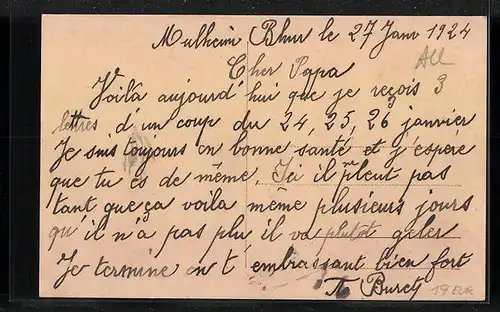 Mulheim Rhur le 27 Janv 1924
All
Cher Papa
Voilà aujourd'hui que je reçois 3
lettres d'un coup du 24, 25, 26 janvier
Je suis toujours en bonne santé et j'espère
que tu es de même. Ici il ne pleut pas
tant que ça voila même plusieurs jours
qu'il n'a pas plu, il va plutot geler
Je termine en t'embrassant bien fort
Burety
19 EUR